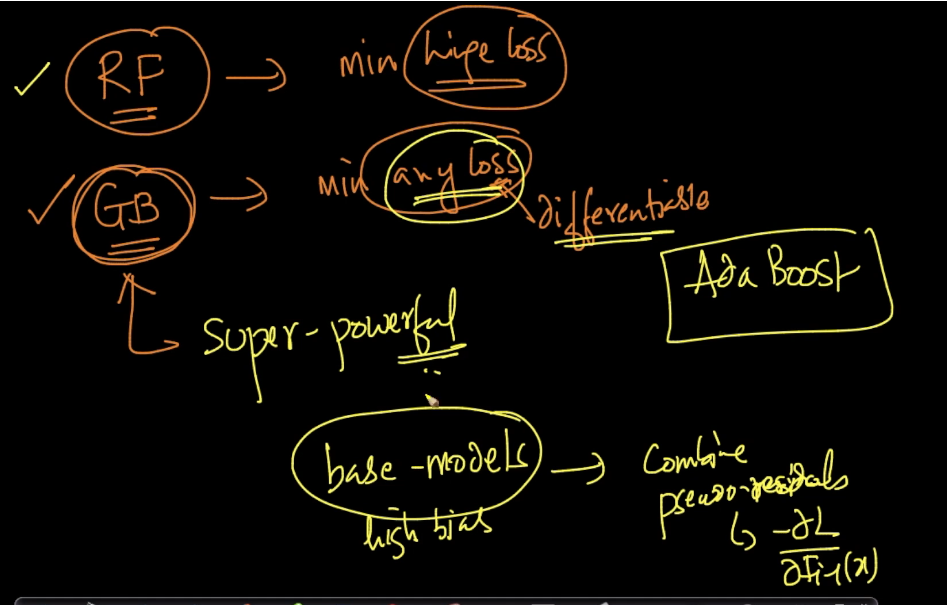 RF → min hinge loss
GB → min any loss
differentiable
Ada Boost
super-powerful
base-models → Combine
pseudo-residuals
high bias
-∂L
∂Fi-1(x)